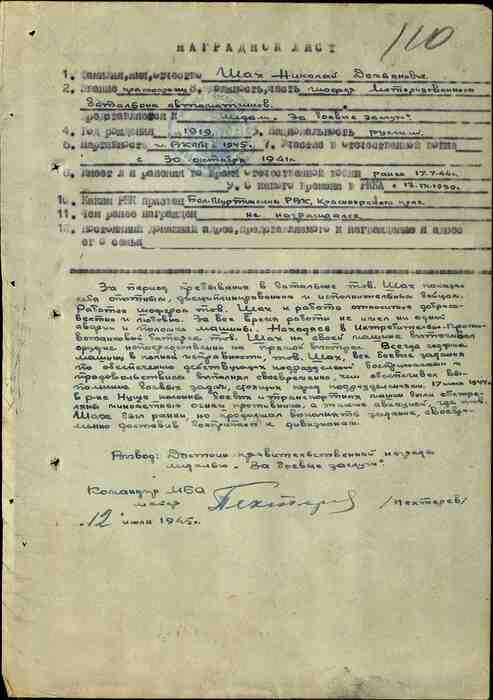 110
НАГРАДНОЙ ЛИСТ
1. Фамилия, имя, отчество Шах Николай
2. Звание красноарм. 3. Должность, часть шофер Моторизованного
батальона автоматчиков.
представляется к медали "За боевые заслуги"
4. Год рождения 1919 5. Национальность русский.
6. Партийность чл. ВКП(б) 1945г. 7. Участие в отечественной войне
с 30 октября 1941г.
8. Имеет ли ранения во время отечественной войны ранен 17.7.44г.
9. С какого времени в РККА с
10. Каким РВК призван Бол-Муртинским РВК, Красноярского края.
11. Чем ранее награжден не награждался.
12. Постоянный домашний адрес, представляемого к награждению и адрес
его семьи
За период пребывания в батальоне тов. Шах показал
себя опытным, дисциплинированным и исполнительным бойцом.
Работая шофером тов. Шах к работе относится добросо-
вестно и любовно. За все время работы не имел ни одной
аварии и поломки машины. Находясь в Истребительно-Проти-
вотанковой батарее, тов. Шах на своей машине вытаскивал
орудие непосредственно на прямой выстрел. Всегда содержа
машину в полной исправности, тов. Шах, все боевые задания
по обеспечению действующих подразделений боеприпасами и
продовольствием выполнял своевременно, чем обеспечивал вы-
полнение боевых задач, стоящих перед подразделением. 17 июля 1944г.
в р-не колонна боевых и транспортных машин были обстре-
ляны минометным огнем противника, а также авиацией, где тов.
Шах был ранен, но продолжал выполнять задание, своевре-
менно доставив боеприпасы к дивизионам.
Вывод: Достоин правительственной награды
медали "За боевые заслуги".
Командир МБА
майор Пехтерев /Пехтерев/
"12" июля 1945г.